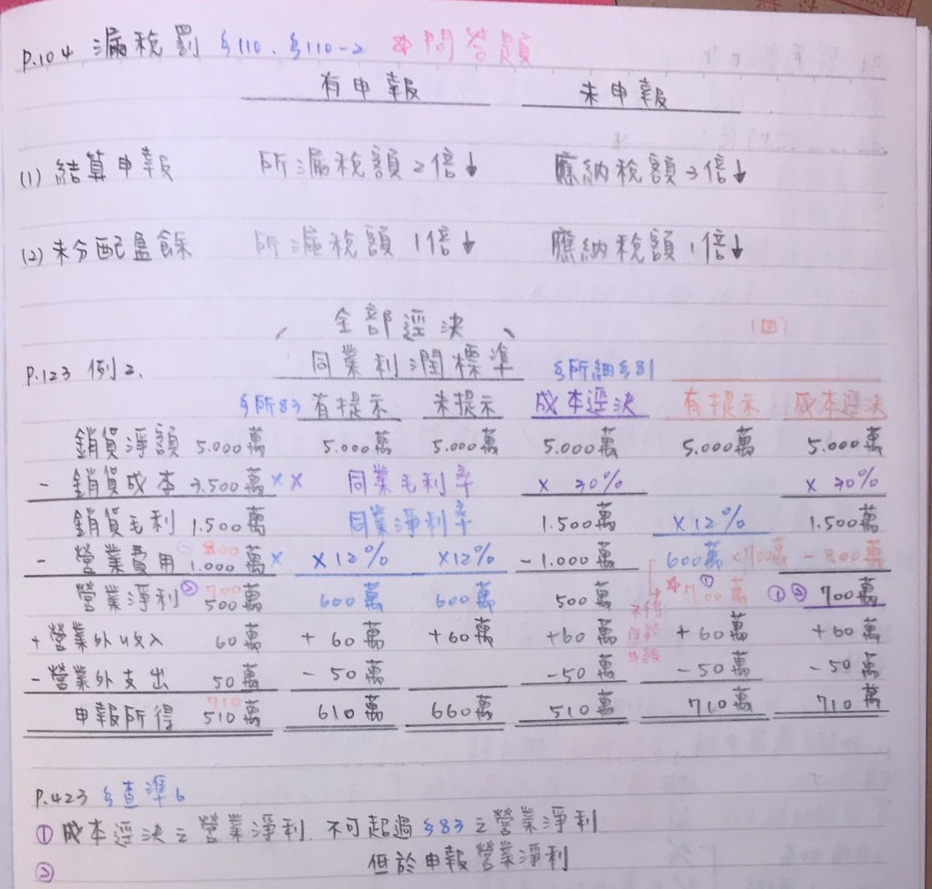 P.104 漏稅罰 §110、§110-2 ✡問答題
有申報 未申報
(1) 結算申報 所漏稅額2倍↓ 應納稅額3倍↓
(2) 未分配盈餘 所漏稅額1倍↓ 應納稅額1倍↓
全部逕決 (四)
P.123 例2. 同業利潤標準 §所細§81
§所83 有提示 未提示 成本逕決 有提示 成本逕決
銷貨淨額 5.000萬 5.000萬 5.000萬 5.000萬 5.000萬 5.000萬
- 銷貨成本 3.500萬 x x 同業毛利率 x 30% x 30%
銷貨毛利 1.500萬 同業淨利率 1.500萬 x12% 1.500萬
800
- 營業費用 1.000萬 x x12% x12% -1.000萬 600萬<700萬 -800萬
營業淨利 ② 700 500萬 600萬 600萬 500萬 ✡① 700萬 ①② 700萬
+ 營業外收入 60萬 +60萬 +60萬 +60萬 +60萬 +60萬
- 營業外支出 50萬 -50萬 -50萬 -50萬 -50萬
710
申報所得 510萬 610萬 660萬 510萬 710萬 710萬
P.423 §查準6
① 成本逕決之營業淨利 不可超過§83之營業淨利
② 但於申報營業淨利